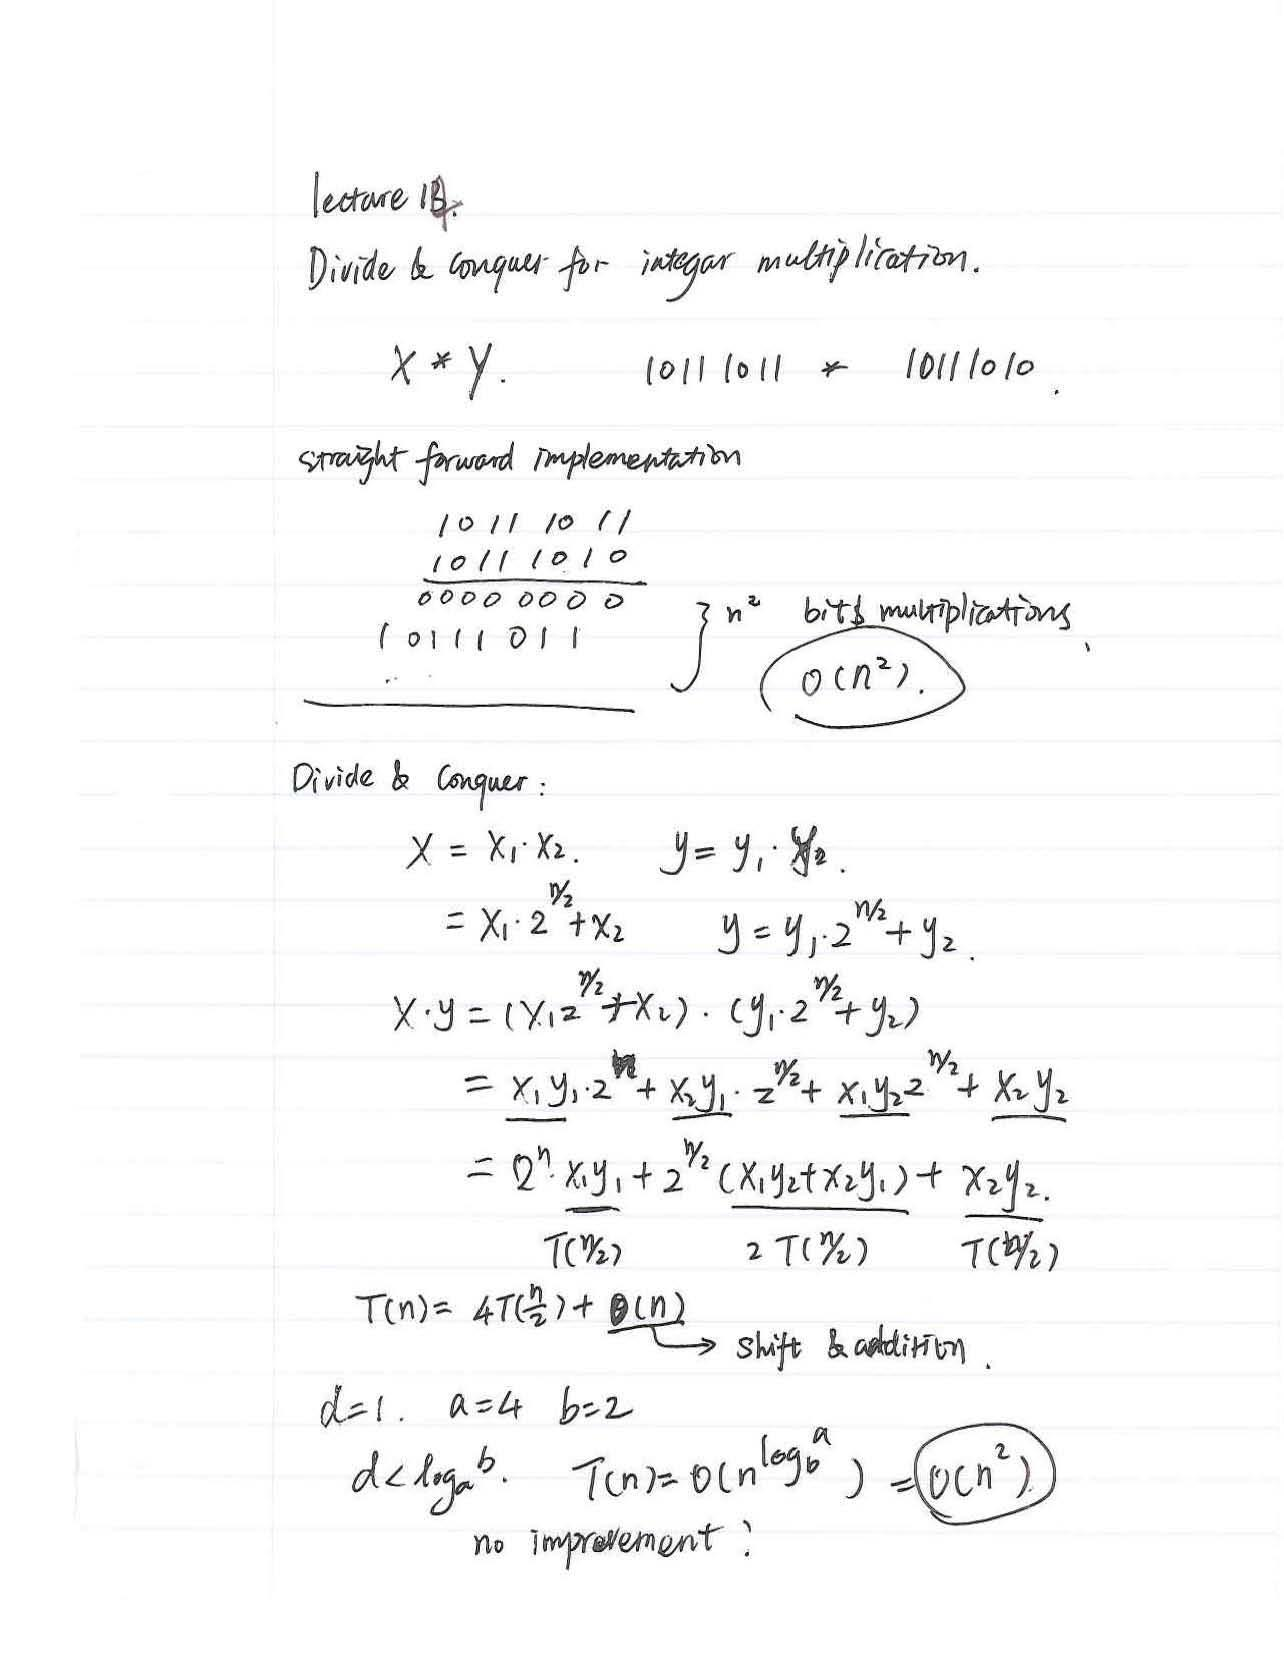 lecture 14.
Divide & conquer for integar multiplication.
X * Y. 10111011 * 10111010.
straight forward implementation
10111011
10111010
00000000
10111011
...
} n² bits multiplications,
O(n²).
Divide & Conquer:
X = X₁·X₂. y = y₁·y₂.
= X₁·2^(n/2) + X₂ y = y₁·2^(n/2) + y₂.
X·y = (X₁2^(n/2) + X₂)·(y₁·2^(n/2) + y₂)
= X₁y₁·2^n + X₂y₁·2^(n/2) + X₁y₂2^(n/2) + X₂y₂
= 2^n·X₁y₁ + 2^(n/2)(X₁y₂ + X₂y₁) + X₂y₂.
T(n/2) 2T(n/2) T(n/2)
T(n) = 4T(n/2) + O(n)
→ shift & addition.
d=1. a=4 b=2
d < log_a b. T(n) = O(n^(log_b a)) = O(n²)
no improvement?